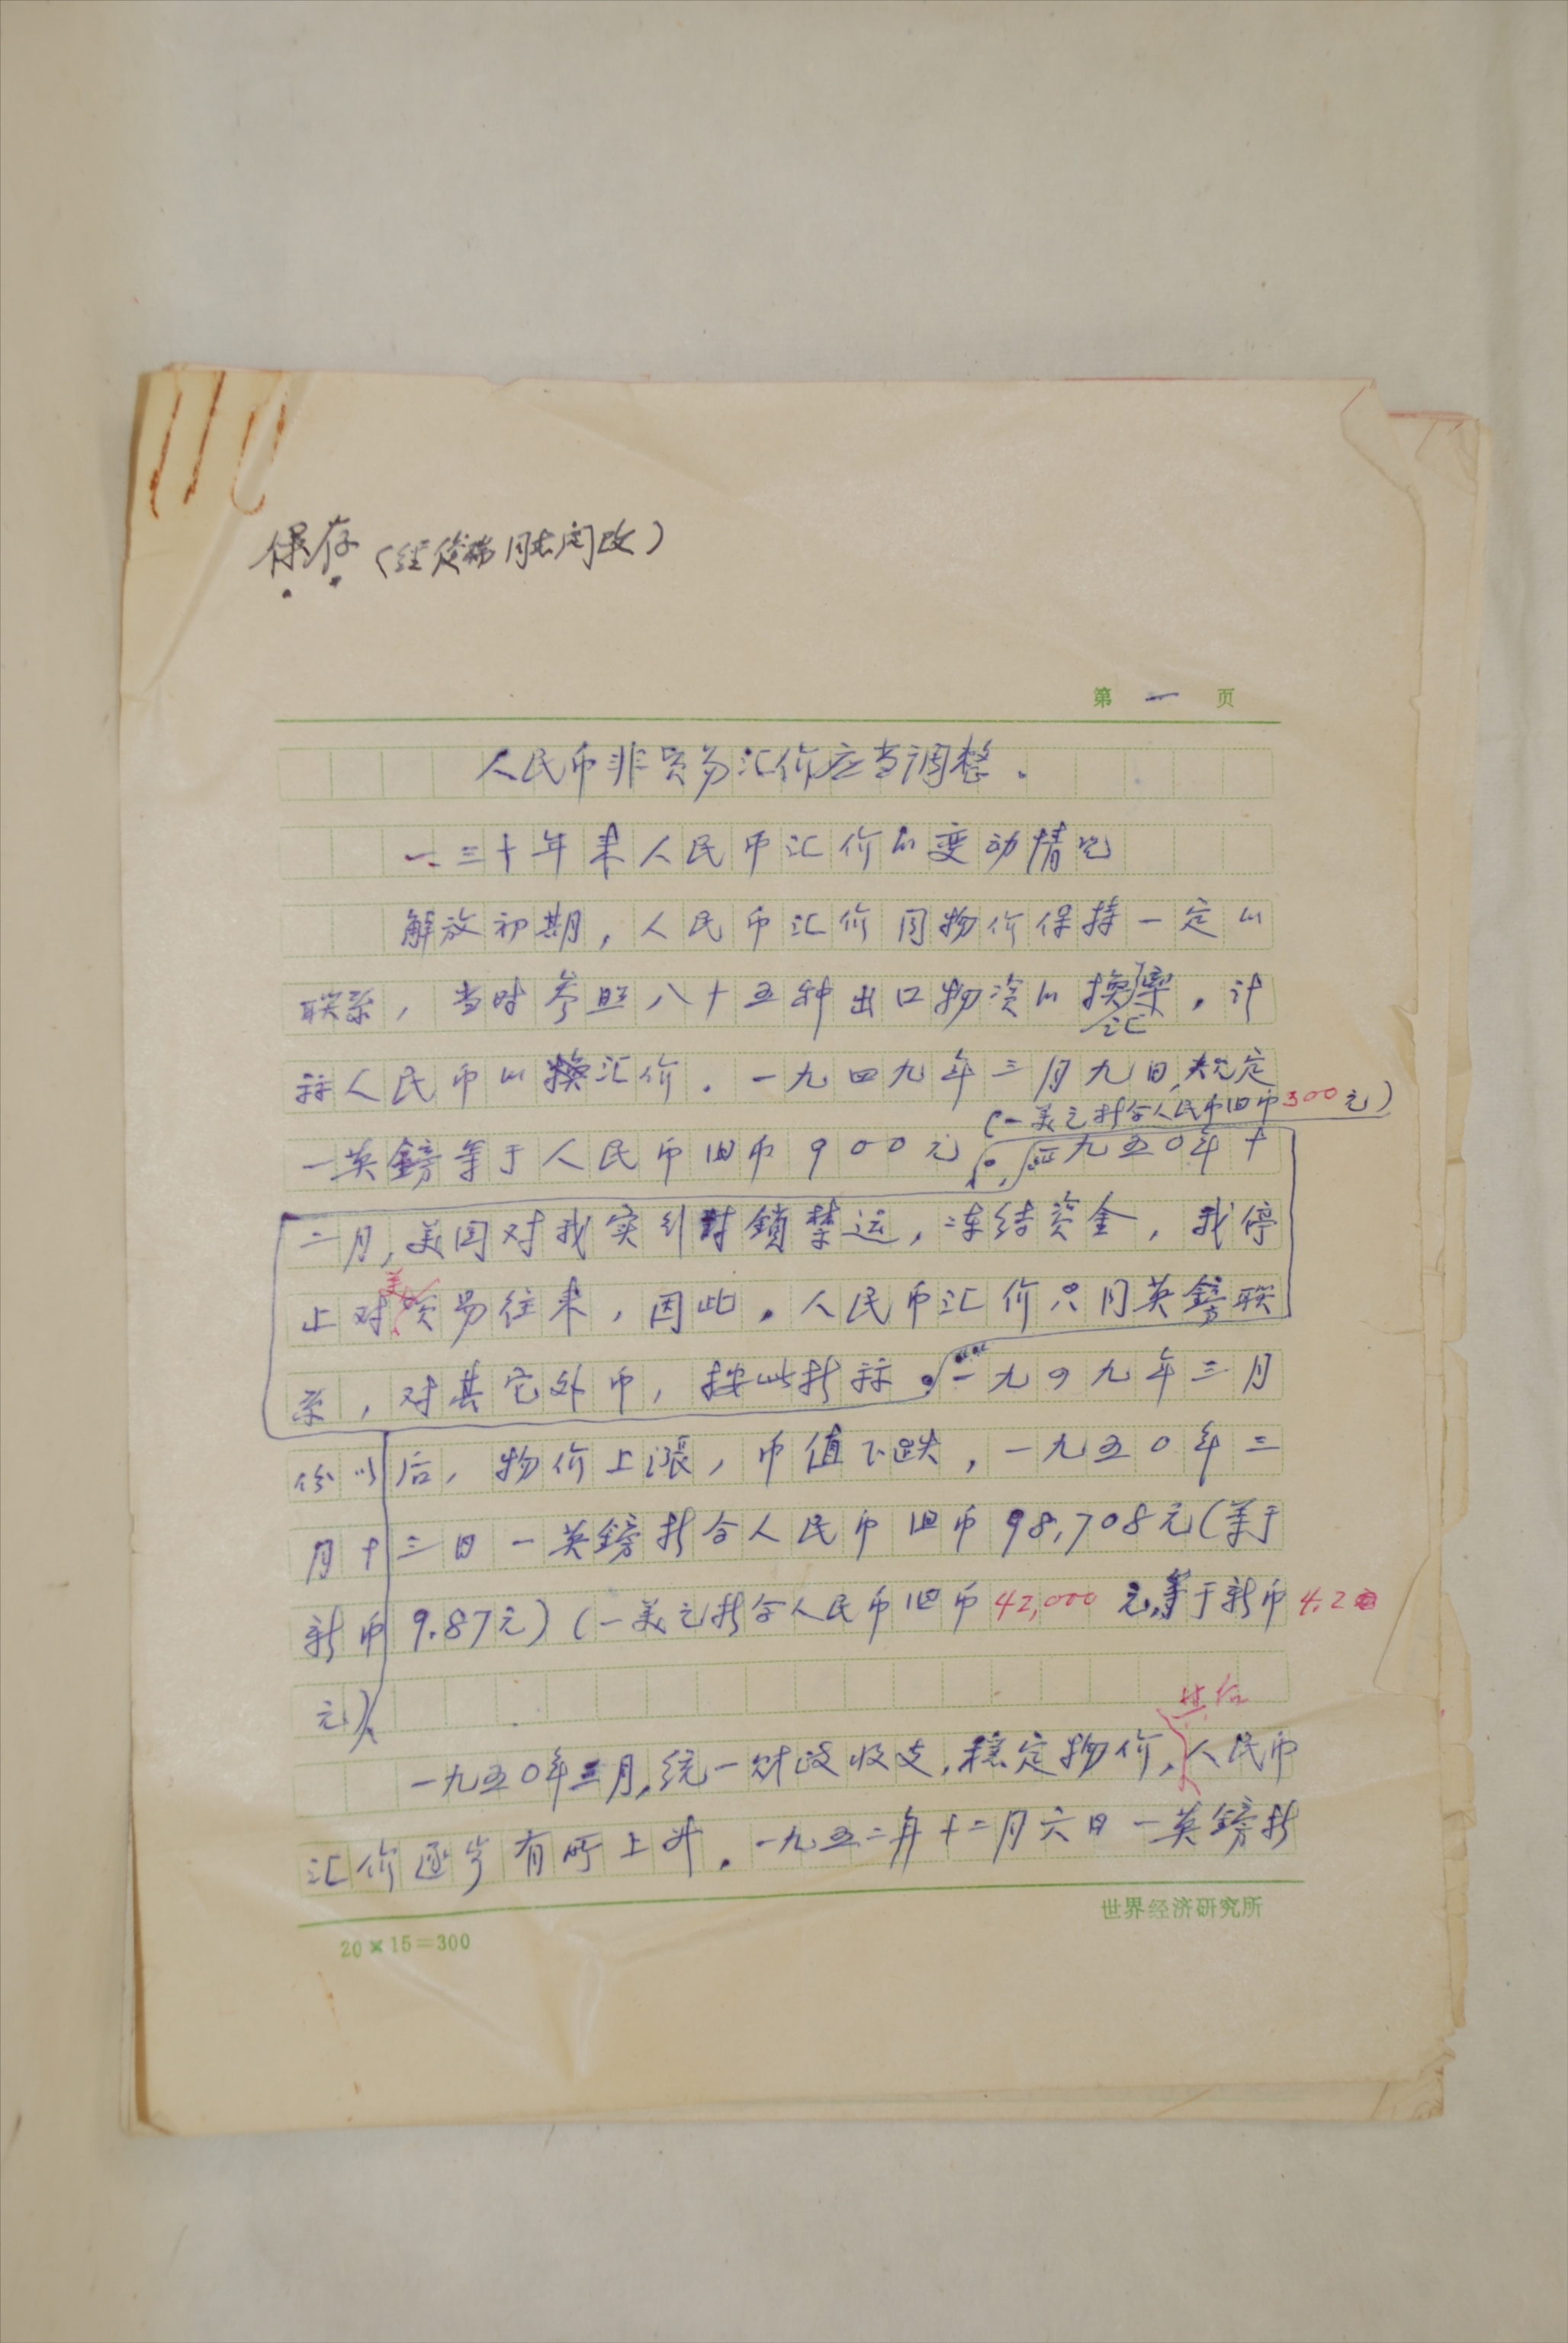 保存(经 同志阅改)
第 一 页
人民币非贸易汇价应当调整.
一、三十年来人民币汇价的变动情况
解放初期,人民币汇价同物价保持一定的
联系,当时参照八十五种出口物资的换汇率,计
算人民币的换汇价.一九四九年三月九日,规定
(一美元折合人民币旧币300元)
一英镑等于人民币旧币900元。一九五0年十
二月,美国对我实行封锁禁运,冻结资金,我停
美
止对贸易往来,因此,人民币汇价只同英镑联
系,对其它外币,按此折算。一九四九年三月
份以后,物价上涨,币值下跌,一九五0年三
月十三日一英镑折合人民币旧币98,708元(等于
新币9.87元)(一美元折合人民币旧币42,000元,等于新币4.2
元)、
其后
一九五0年三月,统一财政收支,稳定物价,人民币
汇价逐步有所上升.一九五二年十二月六日一英镑折
世界经济研究所
20×15=300